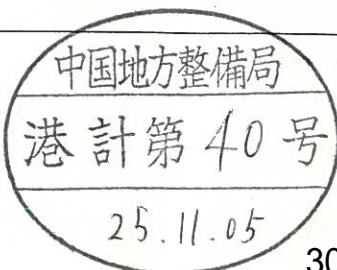 中国地方整備局
港計第40号
25.11.05
30